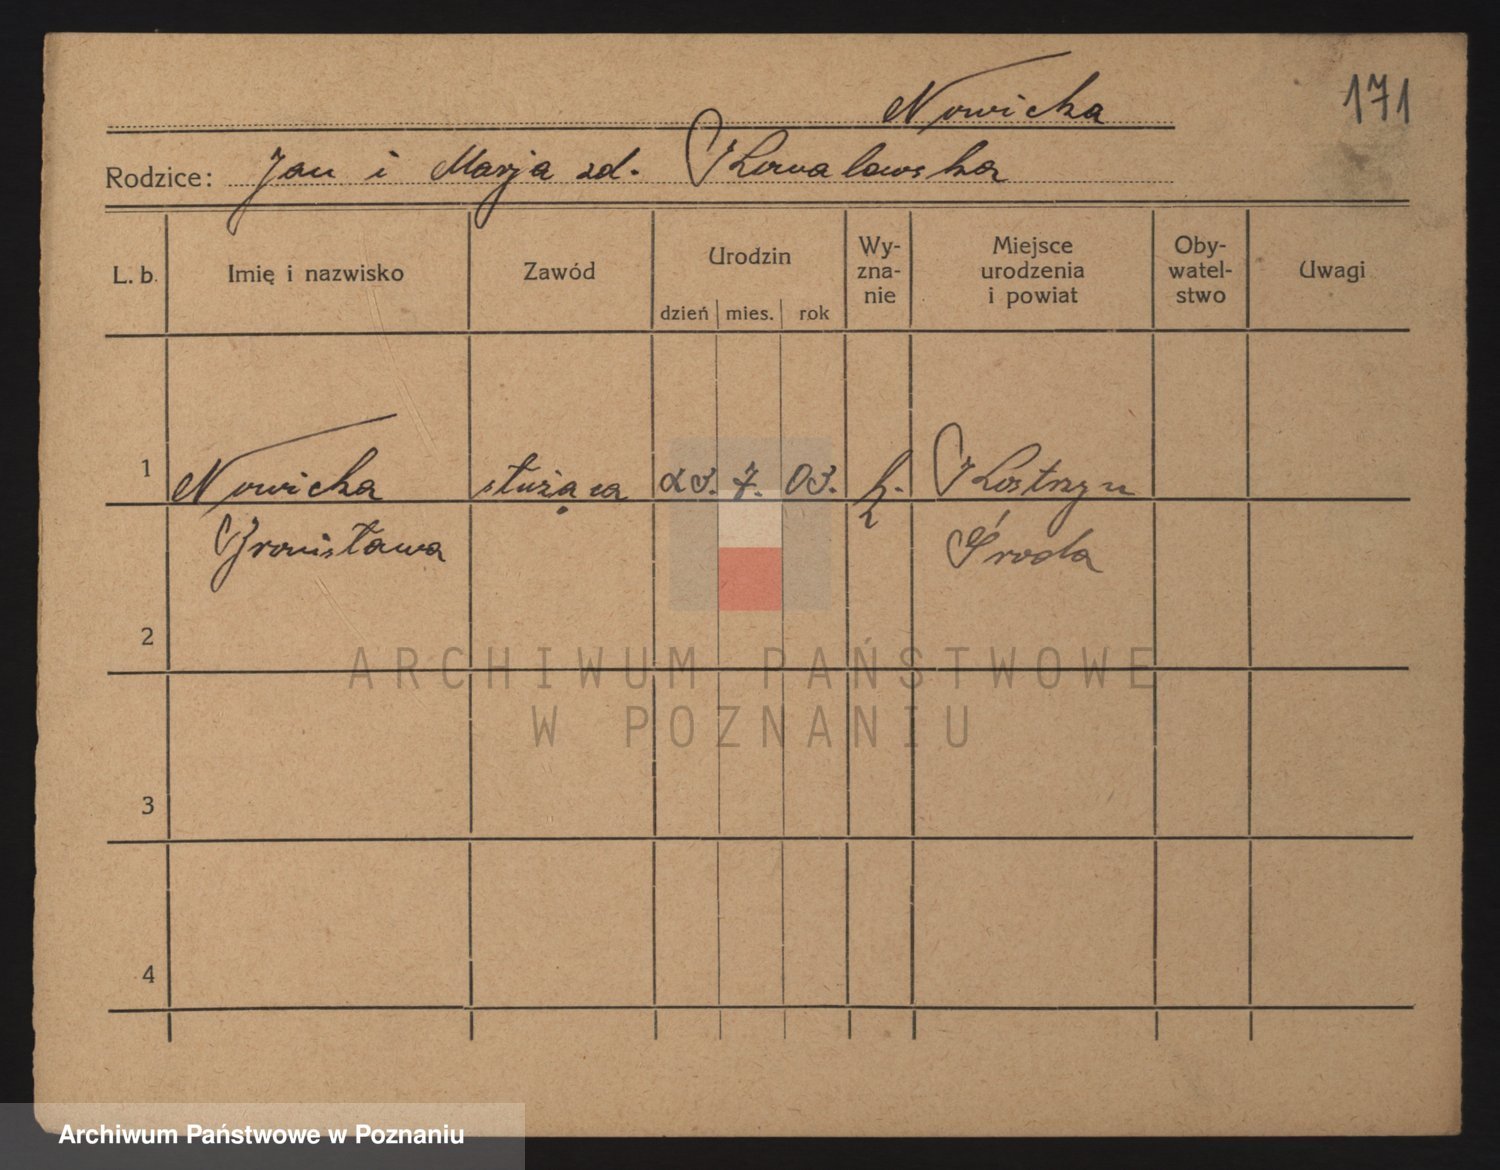 171
Nowicka
Rodzice: Jan i Marja zd. Kowalowska
L. b. Imię i nazwisko Zawód Urodzin Wy-zna-nie Miejsce urodzenia i powiat Oby-watel-stwo Uwagi
dzień mies. rok
1 Nowicka służąca 23. 7. 03. k. Kostrzyn
Bronisława Środa
2
3
4
ARCHIWUM PAŃSTWOWE
W POZNANIU
Archiwum Państwowe w Poznaniu